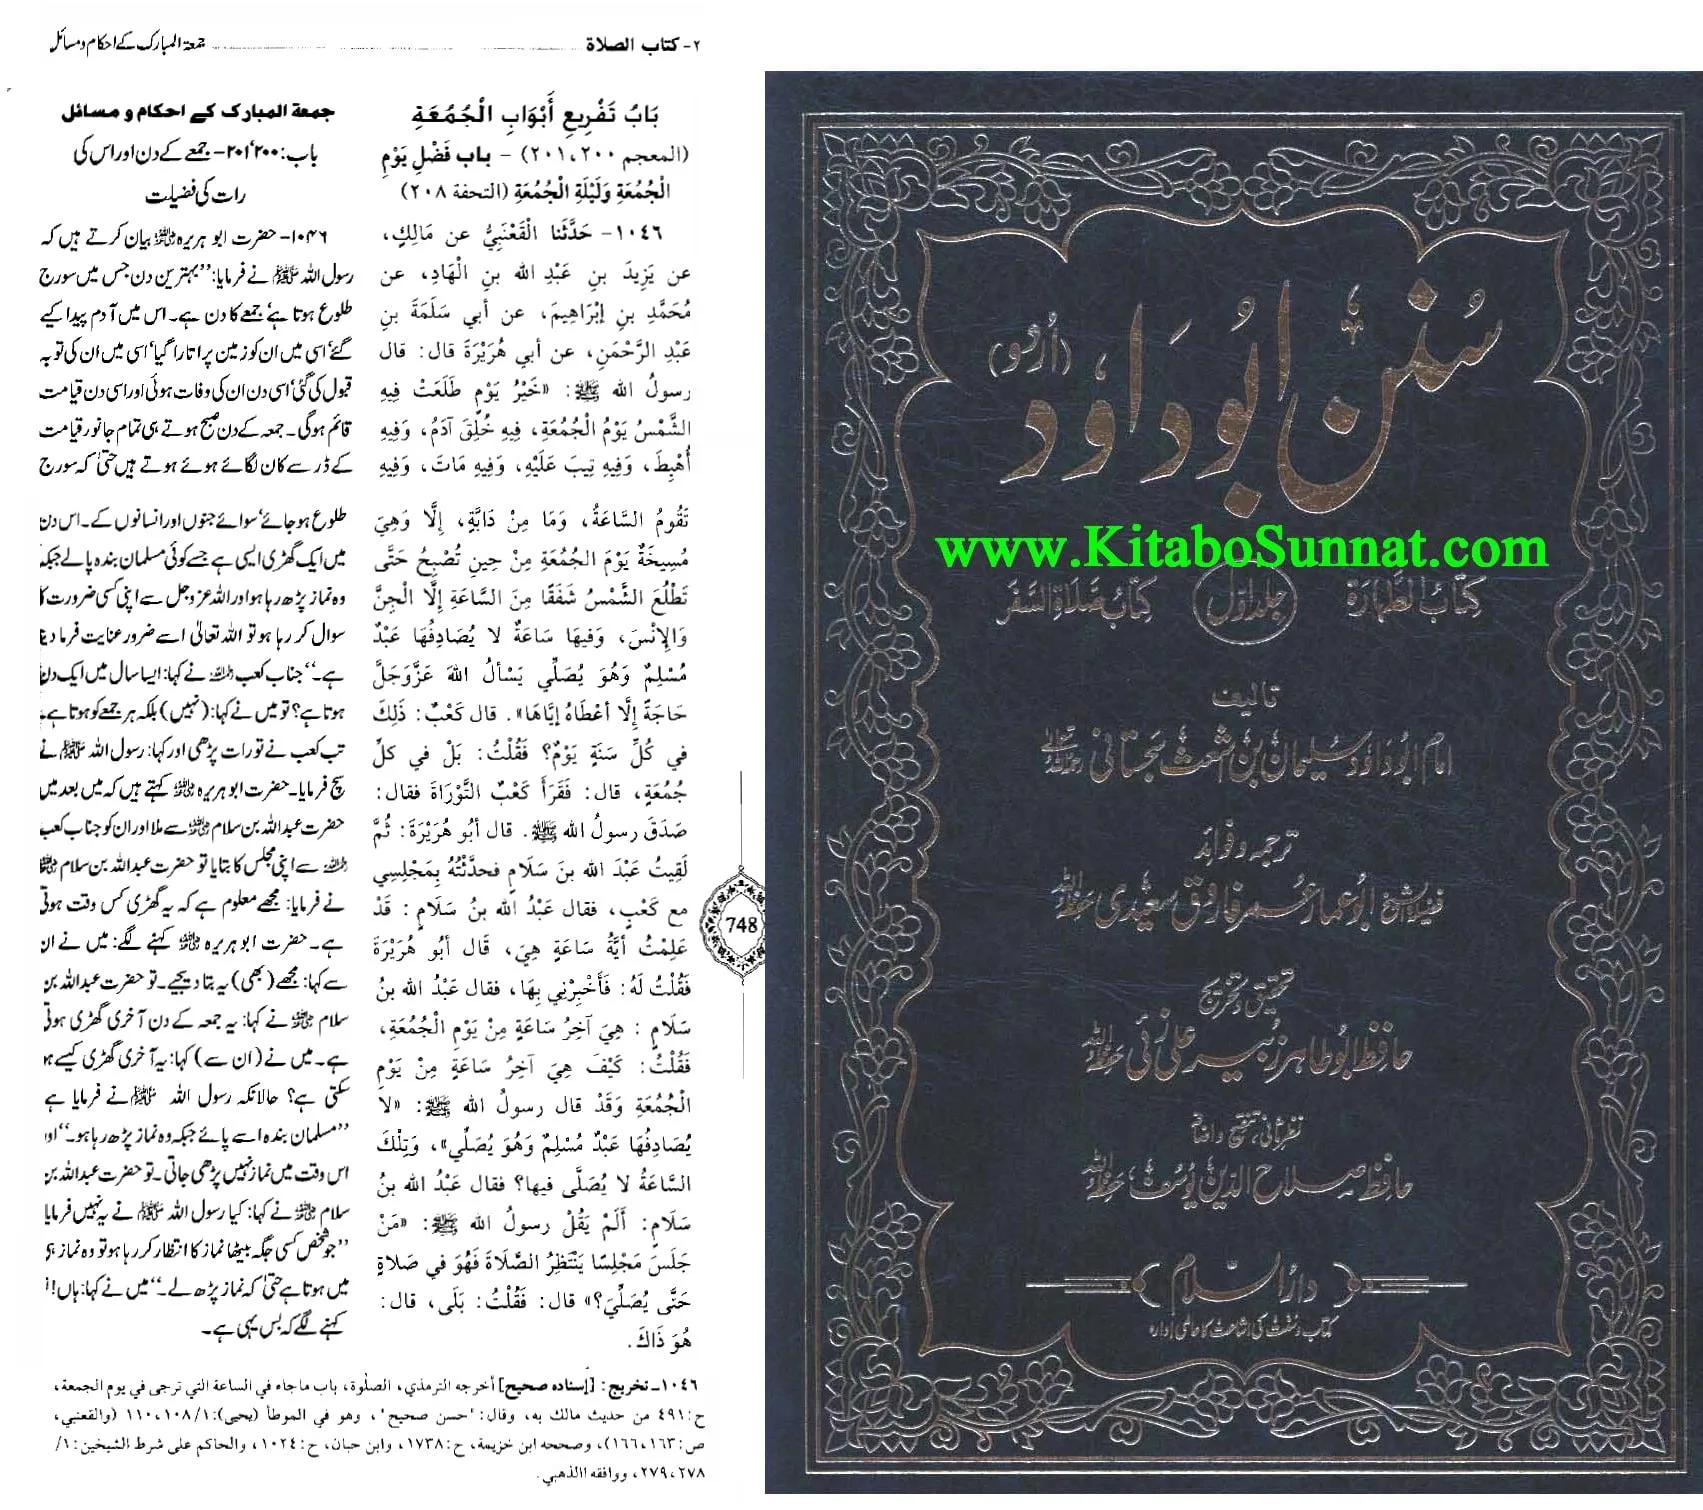 ۲- کتاب الصلاة
جمعۃ المبارک کے احکام و مسائل
بَابُ تَفْرِيعِ أَبْوَابِ الْجُمُعَةِ
(المعجم ۲۰۰، ۲۰۱) - باب فَضْلِ يَوْمِ
الْجُمُعَةِ وَلَيْلَةِ الْجُمُعَةِ (التحفة ۲۰۸)
۱۰٤٦- حَدَّثَنا الْقَعْنَبِيُّ عن مَالِكٍ،
عن يَزِيدَ بنِ عَبْدِ الله بنِ الْهَادِ، عن
مُحَمَّدِ بنِ إبْرَاهِيمَ، عن أبي سَلَمَةَ بنِ
عَبْدِ الرَّحْمَنِ، عن أبي هُرَيْرَةَ قال: قال
رسولُ الله ﷺ: «خَيْرُ يَوْمٍ طَلَعَتْ فِيهِ
الشَّمْسُ يَوْمُ الْجُمُعَةِ، فِيهِ خُلِقَ آدَمُ، وَفِيهِ
أُهْبِطَ، وَفِيهِ تِيبَ عَلَيْهِ، وَفِيهِ مَاتَ، وَفِيهِ
تَقُومُ السَّاعَةُ، وَمَا مِنْ دَابَّةٍ، إِلَّا وَهِيَ
مُسِيخَةٌ يَوْمَ الجُمُعَةِ مِنْ حِينِ تُصْبِحُ حَتَّى
تَطْلُعَ الشَّمْسُ شَفَقًا مِنَ السَّاعَةِ إِلَّا الْجِنَّ
وَالإِنْسَ، وَفِيهَا سَاعَةٌ لا يُصَادِفُهَا عَبْدٌ
مُسْلِمٌ وَهُوَ يُصَلِّي يَسْألُ اللهَ عَزَّوَجَلَّ
حَاجَةً إِلَّا أعْطَاهُ إيَّاهَا». قال كَعْبٌ: ذَلِكَ
في كُلِّ سَنَةٍ يَوْمٌ؟ فَقُلْتُ: بَلْ في كلِّ
جُمُعَةٍ، قال: فَقَرَأَ كَعْبٌ التَّوْرَاةَ فقال:
صَدَقَ رسولُ الله ﷺ. قال أبُو هُرَيْرَةَ: ثُمَّ
لَقِيتُ عَبْدَ الله بنَ سَلَامٍ فحدَّثْتُهُ بِمَجْلِسِي
مع كَعْبٍ، فقال عَبْدُ الله بنُ سَلَامٍ: قَدْ
عَلِمْتُ أيَّةُ سَاعَةٍ هِيَ، قَال أبُو هُرَيْرَةَ
فَقُلْتُ لَهُ: فَأَخْبِرْنِي بِهَا، فقال عَبْدُ الله بنُ
سَلَامٍ: هِيَ آخِرُ سَاعَةٍ مِنْ يَوْمِ الْجُمُعَةِ،
فَقُلْتُ: كَيْفَ هِيَ آخِرُ سَاعَةٍ مِنْ يَوْمِ
الْجُمُعَةِ وَقَدْ قال رسولُ الله ﷺ: «لا
يُصَادِفُهَا عَبْدٌ مُسْلِمٌ وَهُوَ يُصَلِّي»، وَتِلْكَ
السَّاعَةُ لا يُصَلَّى فيها؟ فقال عَبْدُ الله بنُ
سَلَامٍ: ألَمْ يَقُلْ رسولُ الله ﷺ: «مَنْ
جَلَسَ مَجْلِسًا يَنْتَظِرُ الصَّلَاةَ فَهُوَ في صَلاةٍ
حَتَّى يُصَلِّيَ؟» قال: فَقُلْتُ: بَلَى، قال:
هُوَ ذَاكَ.
جمعة المبارک کے احکام و مسائل
باب:۲۰۰، ۲۰۱- جمعے کے دن اور اس کی
رات کی فضیلت
۱۰۴۶- حضرت ابو ہریرہ رضی اللہ عنہ بیان کرتے ہیں کہ
رسول اللہ ﷺ نے فرمایا: ”بہترین دن جس میں سورج
طلوع ہوتا ہے، جمعے کا دن ہے۔ اس میں آدم پیدا کیے
گئے، اسی میں ان کو زمین پر اتارا گیا، اسی میں ان کی توبہ
قبول کی گئی، اسی دن ان کی وفات ہوئی اور اسی دن قیامت
قائم ہوگی۔ جمعہ کے دن صبح ہوتے ہی تمام جانور قیامت
کے ڈر سے کان لگائے ہوئے ہوتے ہیں حتیٰ کہ سورج
طلوع ہو جائے، سوائے جنوں اور انسانوں کے۔ اس دن
میں ایک گھڑی ایسی ہے جسے کوئی مسلمان بندہ پالے جبکہ
وہ نماز پڑھ رہا ہو اور اللہ عزوجل سے اپنی کسی ضرورت کا
سوال کر رہا ہو تو اللہ تعالیٰ اسے ضرور عنایت فرما دیتا
ہے۔“ جناب کعب رحمہ اللہ نے کہا: ایسا سال میں ایک دن
ہوتا ہے؟ تو میں نے کہا: (نہیں) بلکہ ہر جمعے کو ہوتا ہے۔
تب کعب نے تورات پڑھی اور کہا: رسول اللہ ﷺ نے
سچ فرمایا۔ حضرت ابو ہریرہ رضی اللہ عنہ کہتے ہیں کہ میں بعد میں
حضرت عبداللہ بن سلام رضی اللہ عنہ سے ملا اور ان کو جناب کعب
رحمہ اللہ سے اپنی مجلس کا بتایا تو حضرت عبداللہ بن سلام رضی اللہ عنہ
نے فرمایا: مجھے معلوم ہے کہ یہ گھڑی کس وقت ہوتی
ہے۔ حضرت ابو ہریرہ رضی اللہ عنہ کہنے لگے: میں نے ان
سے کہا: مجھے (بھی) یہ بتا دیجیے۔ تو حضرت عبداللہ بن
سلام رضی اللہ عنہ نے کہا: یہ جمعہ کے دن آخری گھڑی ہوتی
ہے۔ میں نے (ان سے) کہا: یہ آخری گھڑی کیسے ہو
سکتی ہے؟ حالانکہ رسول اللہ ﷺ نے فرمایا ہے
”مسلمان بندہ اسے پائے جبکہ وہ نماز پڑھ رہا ہو۔“ اور
اس وقت میں نماز نہیں پڑھی جاتی۔ تو حضرت عبداللہ بن
سلام رضی اللہ عنہ نے کہا: کیا رسول اللہ ﷺ نے یہ نہیں فرمایا
”جو شخص کسی جگہ بیٹھا نماز کا انتظار کر رہا ہو تو وہ نماز ہی
میں ہوتا ہے حتیٰ کہ نماز پڑھ لے۔“ میں نے کہا: ہاں!
کہنے لگے کہ بس یہی ہے۔
748
۱۰٤٦ـ تخريج: [إسناده صحيح] أخرجه الترمذي، الصلوة، باب ماجاء في الساعة التي ترجى في يوم الجمعة،
ح:٤٩١ من حديث مالك به، وقال: "حسن صحيح"، وهو في الموطأ (يحيى): ۱/۱۰۸، ۱۱۰ (والقعنبي،
ص:۱٦۳، ۱٦٦)، وصححه ابن خزيمة، ح:۱۷۳۸، وابن حبان، ح:۱۰۲٤، والحاكم على شرط الشيخين: ۱/
۲۷۸، ۲۷۹، ووافقه االذهبي.
سُنن ابُو دَاوٗد (اُردُو)
www.KitaboSunnat.com
کتابُ الطہارَة
جلد اوّل
کتابُ صَلاة السَّفَر
تالیف
امام ابُو داوٗد سُلیمان بن اشعث سجستانی رحمہ اللہ
ترجمہ و فوائد
فضیلۃ الشیخ ابُو عمار عُمر فارُوق سعیدی حفظہ اللہ
تحقیق و تخریج
حافظ ابُو طاہر زُبیر علی زئی حفظہ اللہ
نظرثانی، تنقیح و اضافات
حافظ صلاح الدین یُوسف حفظہ اللہ
دارُالسلام
کتاب و سنت کی اشاعت کا عالمی ادارہ